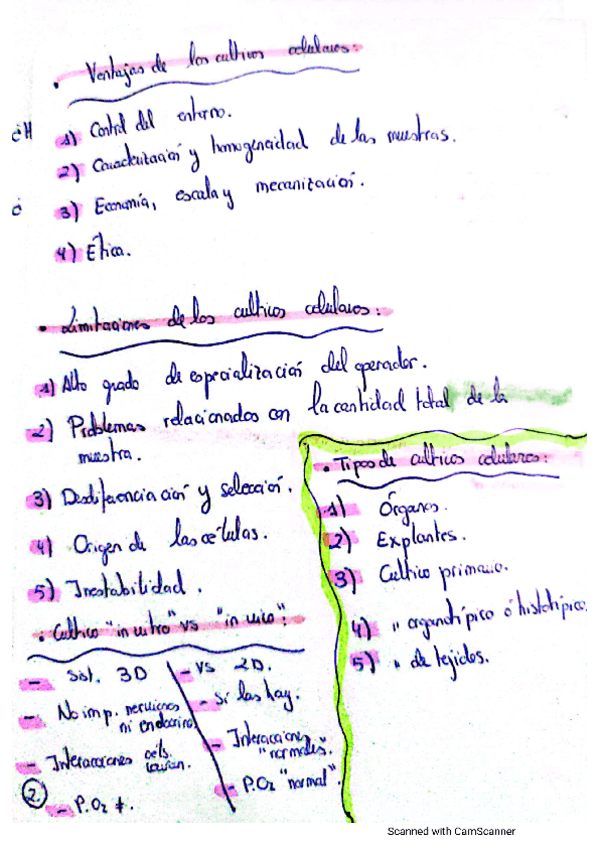 • Ventajas de los cultivos celulares:
1) Control del entorno.
2) Caracterización y homogeneidad de las muestras.
3) Economía, escala y mecanización.
4) Ética.
• Limitaciones de los cultivos celulares:
1) Alto grado de especialización del operador.
2) Problemas relacionados con la cantidad total de la
muestra.
3) Desdiferenciación y selección.
4) Origen de las células.
5) Inestabilidad.
• Cultivo "in vitro" vs "in vivo":
- Sist. 3D - vs 2D.
- No imp. nerviosos
ni endocrino
- Sí las hay.
- Interacciones cels.
- Interacciones
"normales".
- P.O2 ≠.
- P.O2 "normal".
• Tipos de cultivos celulares:
1) Órganos.
2) Explantes.
3) Cultivo primario.
4) " organotípico ó histotípico.
5) " de tejidos.
2.
Scanned with CamScanner